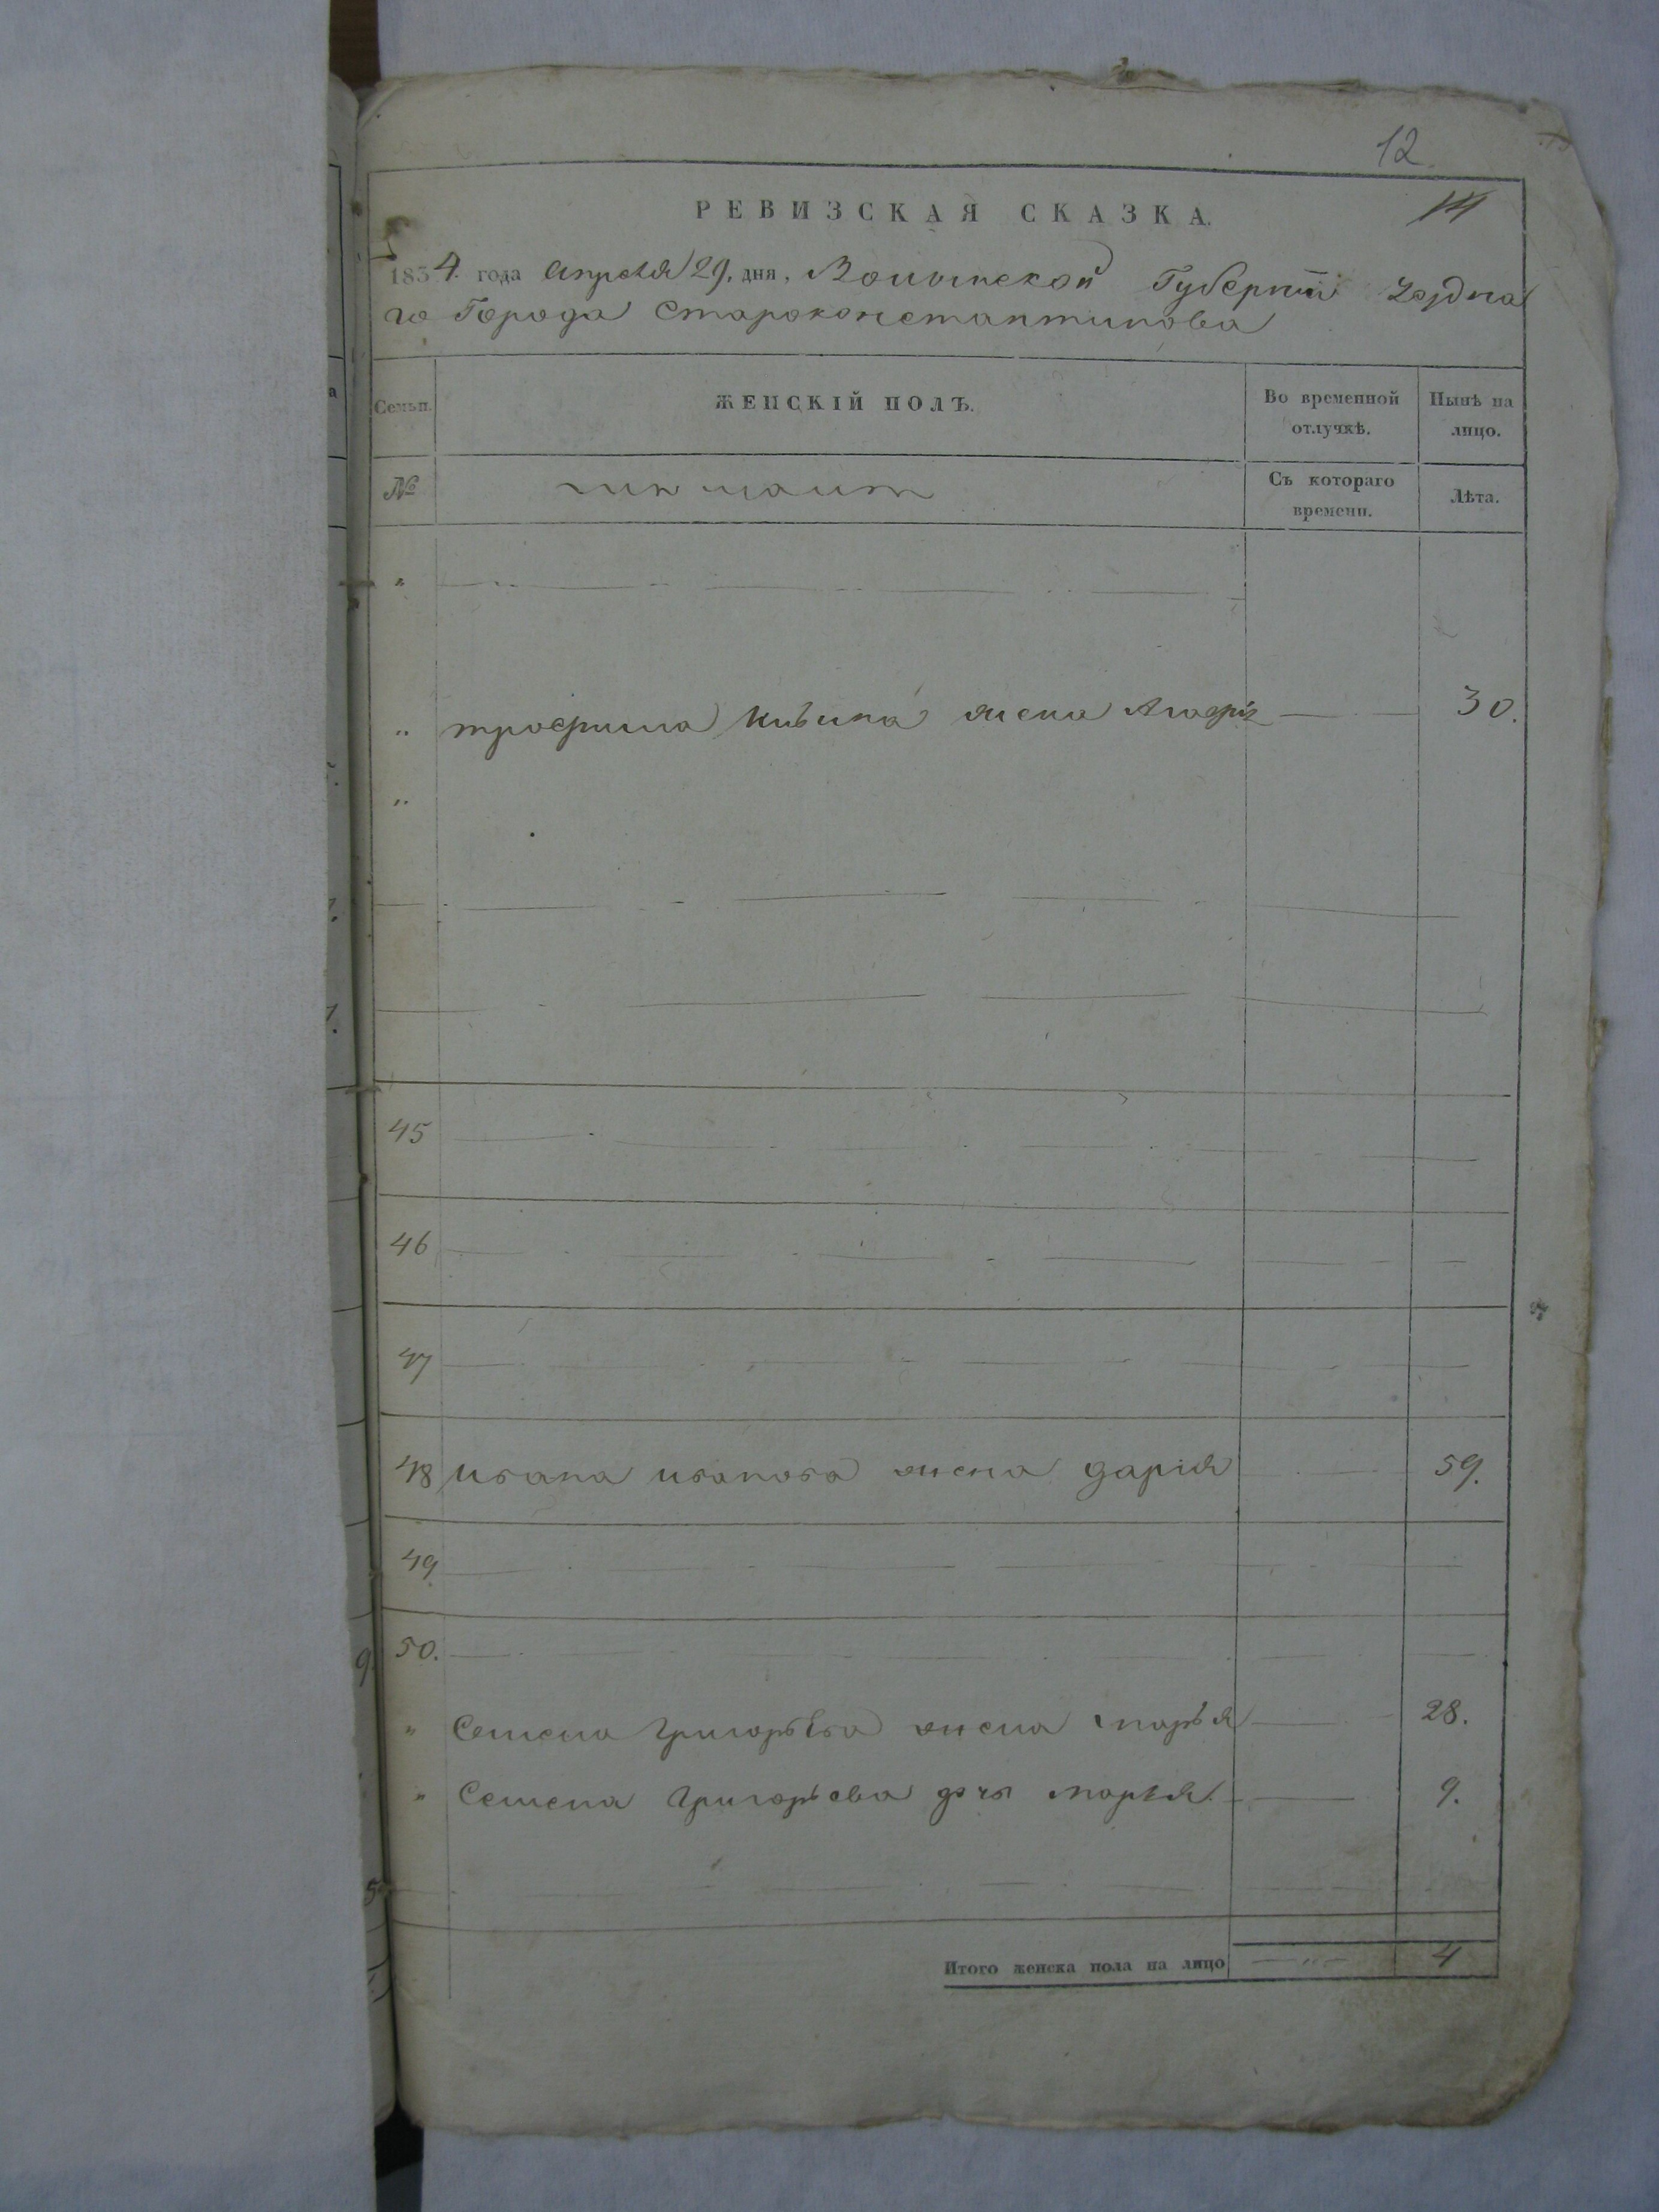 12
РЕВИЗСКАЯ СКАЗКА.
1834. года Апреля 29. дня, Волынской Губерніи уездна
го Города Староконстантинова
Семьи.
ЖЕНСКІЙ ПОЛЪ.
Во временной отлучкѣ.
Нынѣ на лицо.
№
Съ котораго времени.
Лѣта.
"
" трофима жена 30.
"
45
46
47
48 ивана иванова жена дарія 59.
49
50.
" Семена Григорьева жена марья 28.
" Семена Григорьева дочь марья. 9.
Итого женска пола на лицо 4